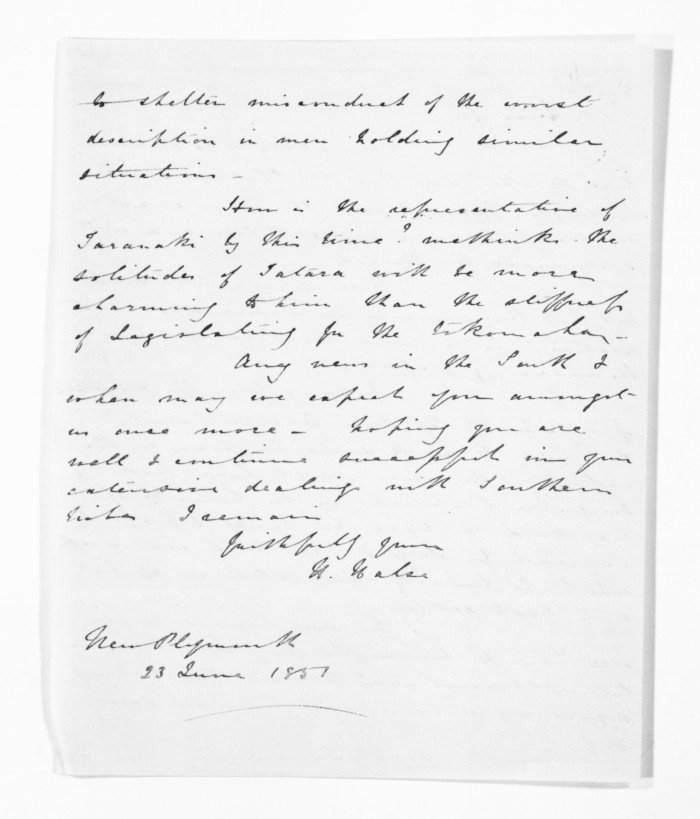 to shelter misconduct of the worst
description in men holding similar
situations -
How is the representative of
Taranaki by this time? methinks the
solitudes of Tatara will be more
charming to him than the stiffness
of Legislating for the
Any news in the South &
when may we expect you amongst
us once more - hoping you are
well & continue successful in your
extensive dealings with Southern
tribes I remain
faithfully yours
H. Halse
New Plymouth
23 June 1851